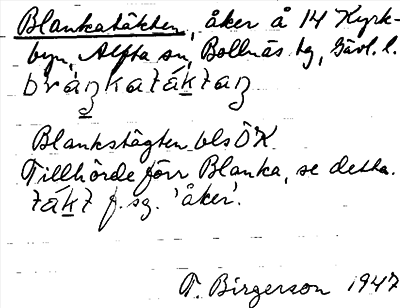 Blankatäkten, åker å 14 Kyrk-
byn, Alfta sn, Bollnäs tg, Gävl. l.
Blankstägten bls ÖK.
Tillhörde förr Blanka, se detta.
f. sg. 'åker'.
T. Birgerson 1947